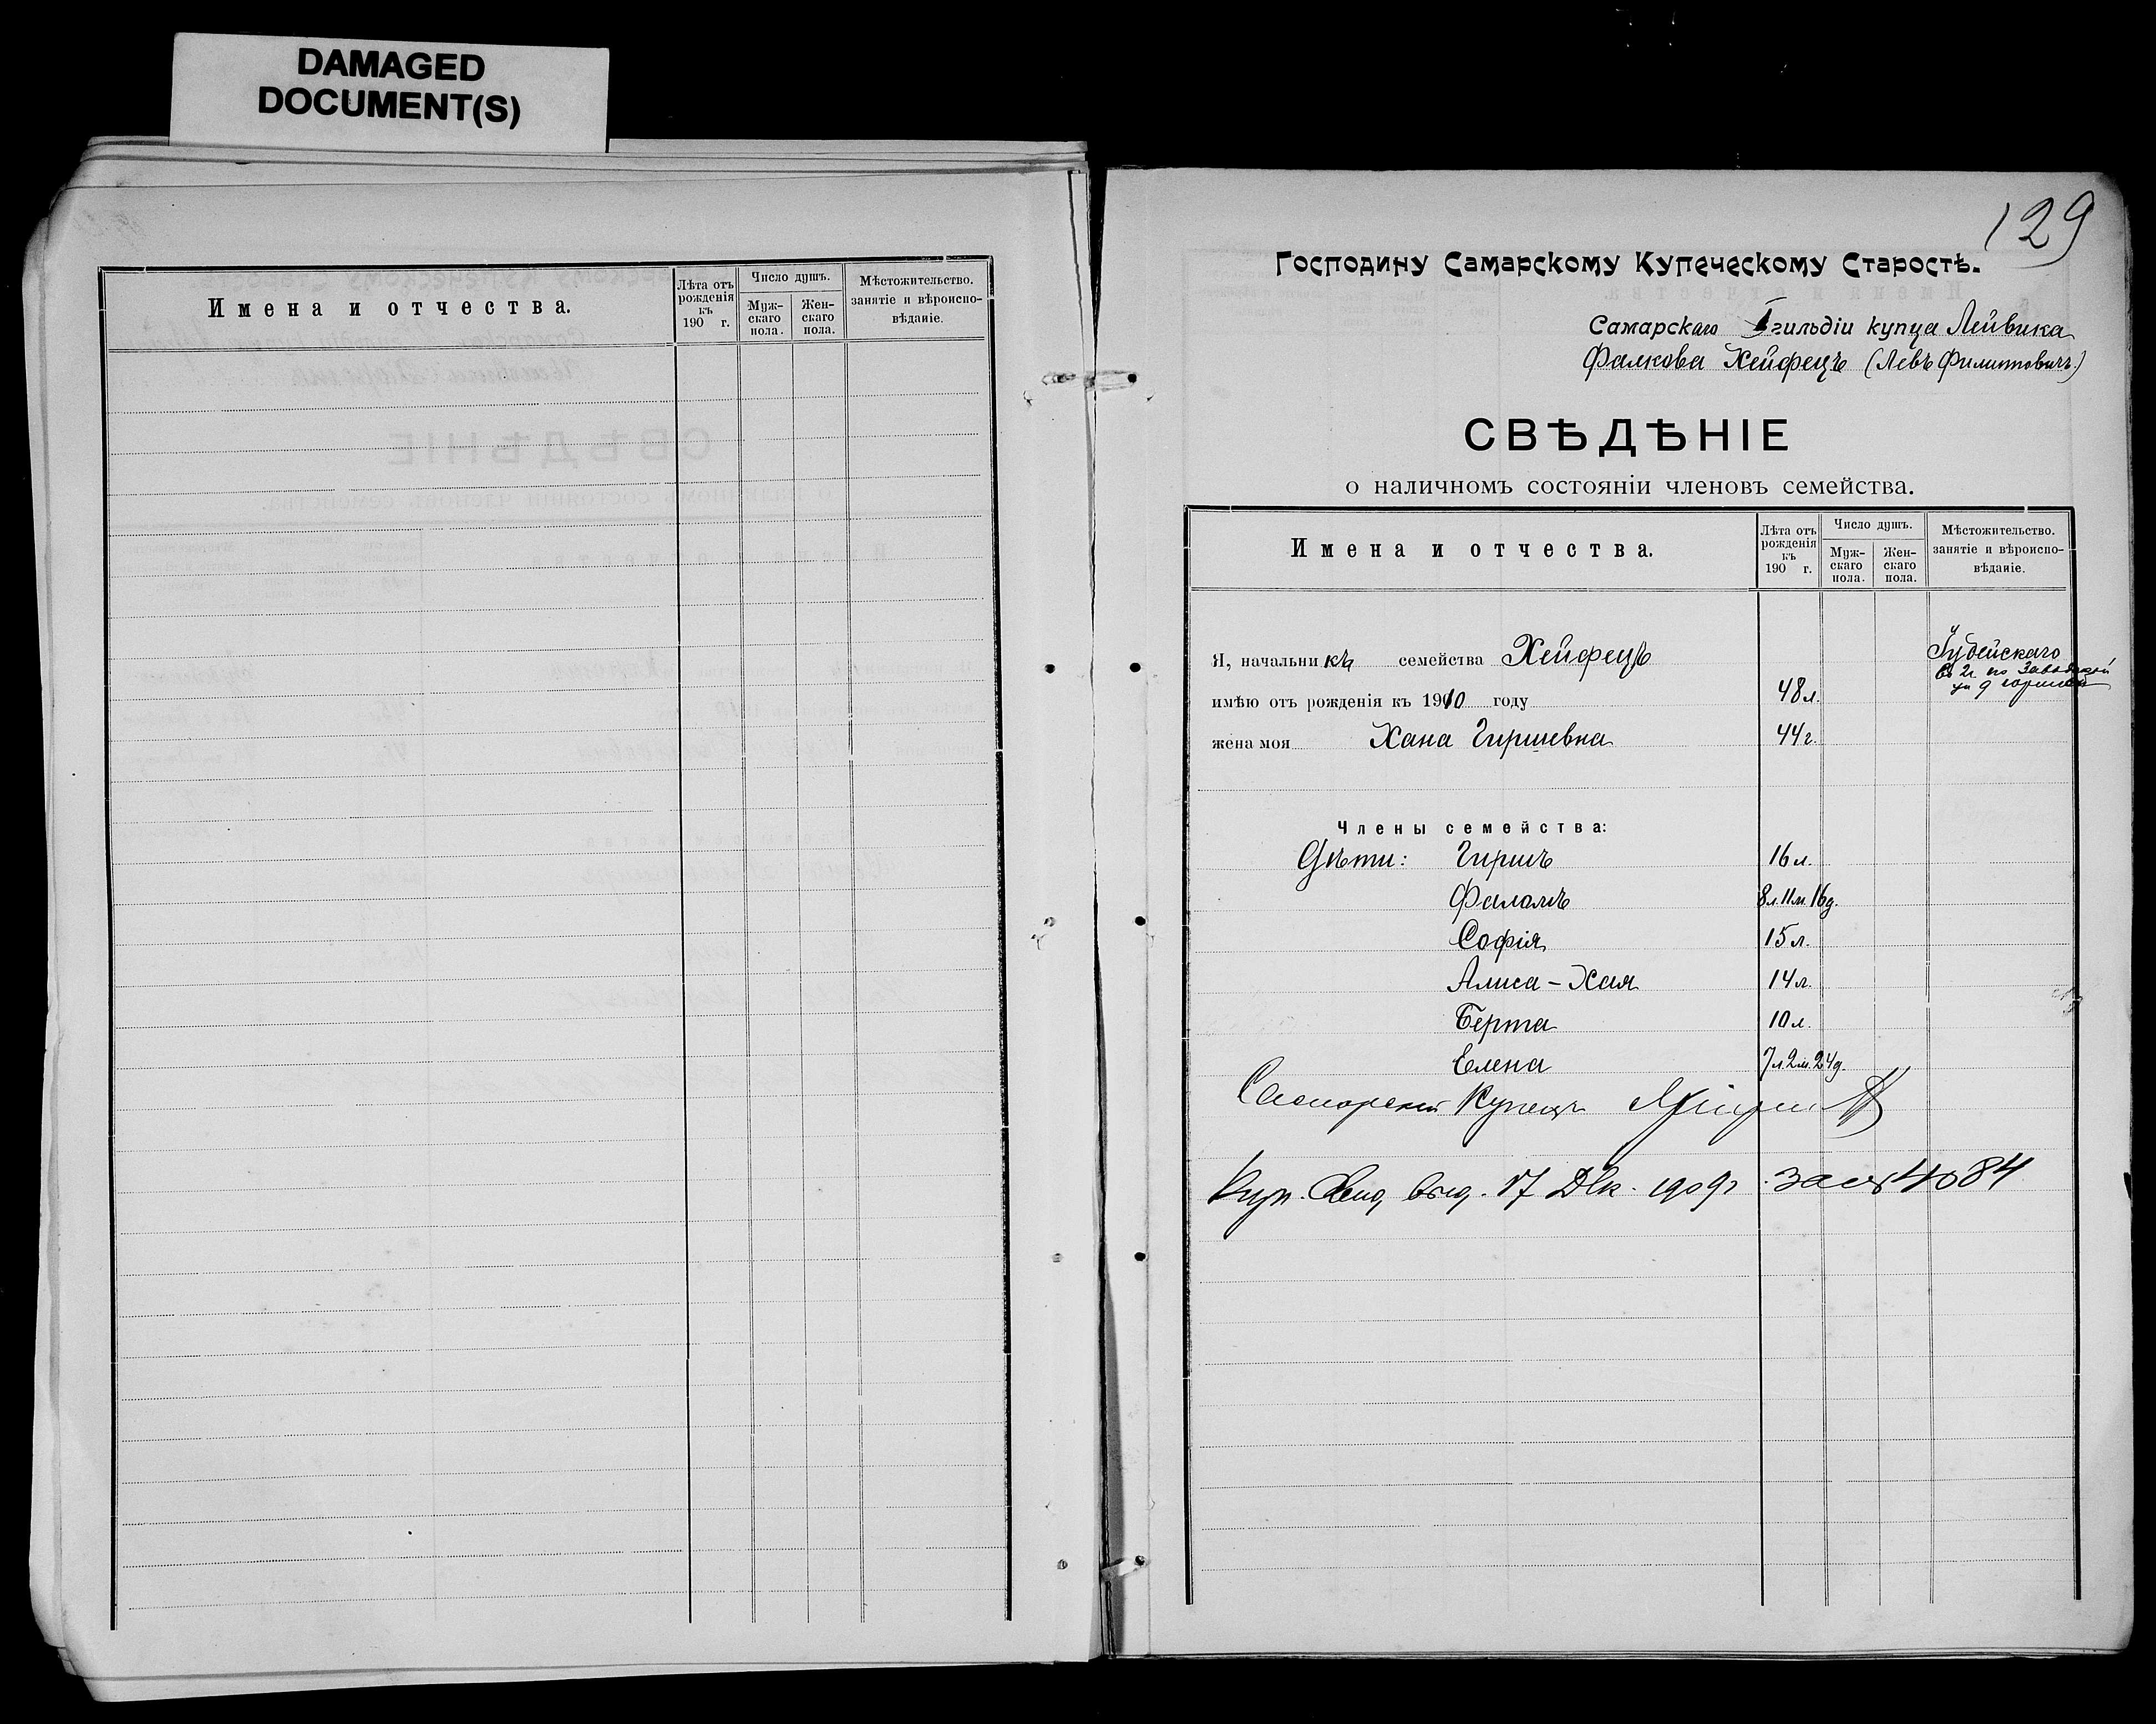 DAMAGED
DOCUMENT(S)
Имена и отчества.
Лѣта отъ рожденія къ 190 г.
Число душъ.
Мужскаго пола.
Женскаго пола.
Мѣстожительство. занятіе и вѣроисповѣданіе.
129
Господину Самарскому Купеческому Старостѣ.
Самарскаго I гильдіи купца Лейвика
Фалкова Хейфецъ (Левъ Филипповичъ)
СВѢДѢНІЕ
о наличномъ состояніи членовъ семейства.
Имена и отчества.
Лѣта отъ рожденія къ 190 г.
Число душъ.
Мужскаго пола.
Женскаго пола.
Мѣстожительство. занятіе и вѣроисповѣданіе.
Я, начальникъ семейства Хейфецъ Іудейскаго
имѣю отъ рожденія къ 1910 году 48 л.
жена моя Хана Гиршевна 44 г.
Члены семейства:
Дѣти: Гиршъ 16 л.
8 л. 11 м. 16 д.
Софія 15 л.
Алиса-Хая 14 л.
Берта 10 л.
Елена 7 л. 2 м. 24 д.
Самарскій Купецъ
Куп. выд. 17 Дек. 1909 г. за № 4084